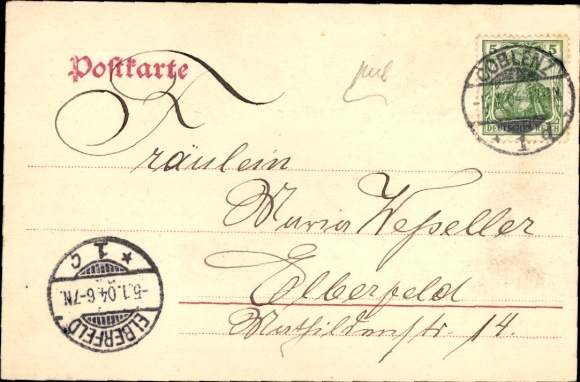 Postkarte
5 5
DEUTSCHES REICH
COBLENZ
* 1 d
Fräulein
Maria Weßeller
Elberfeld
Mathildenstr. 14.
ELBERFELD
-5.1.04.6-7N.
* 1 c